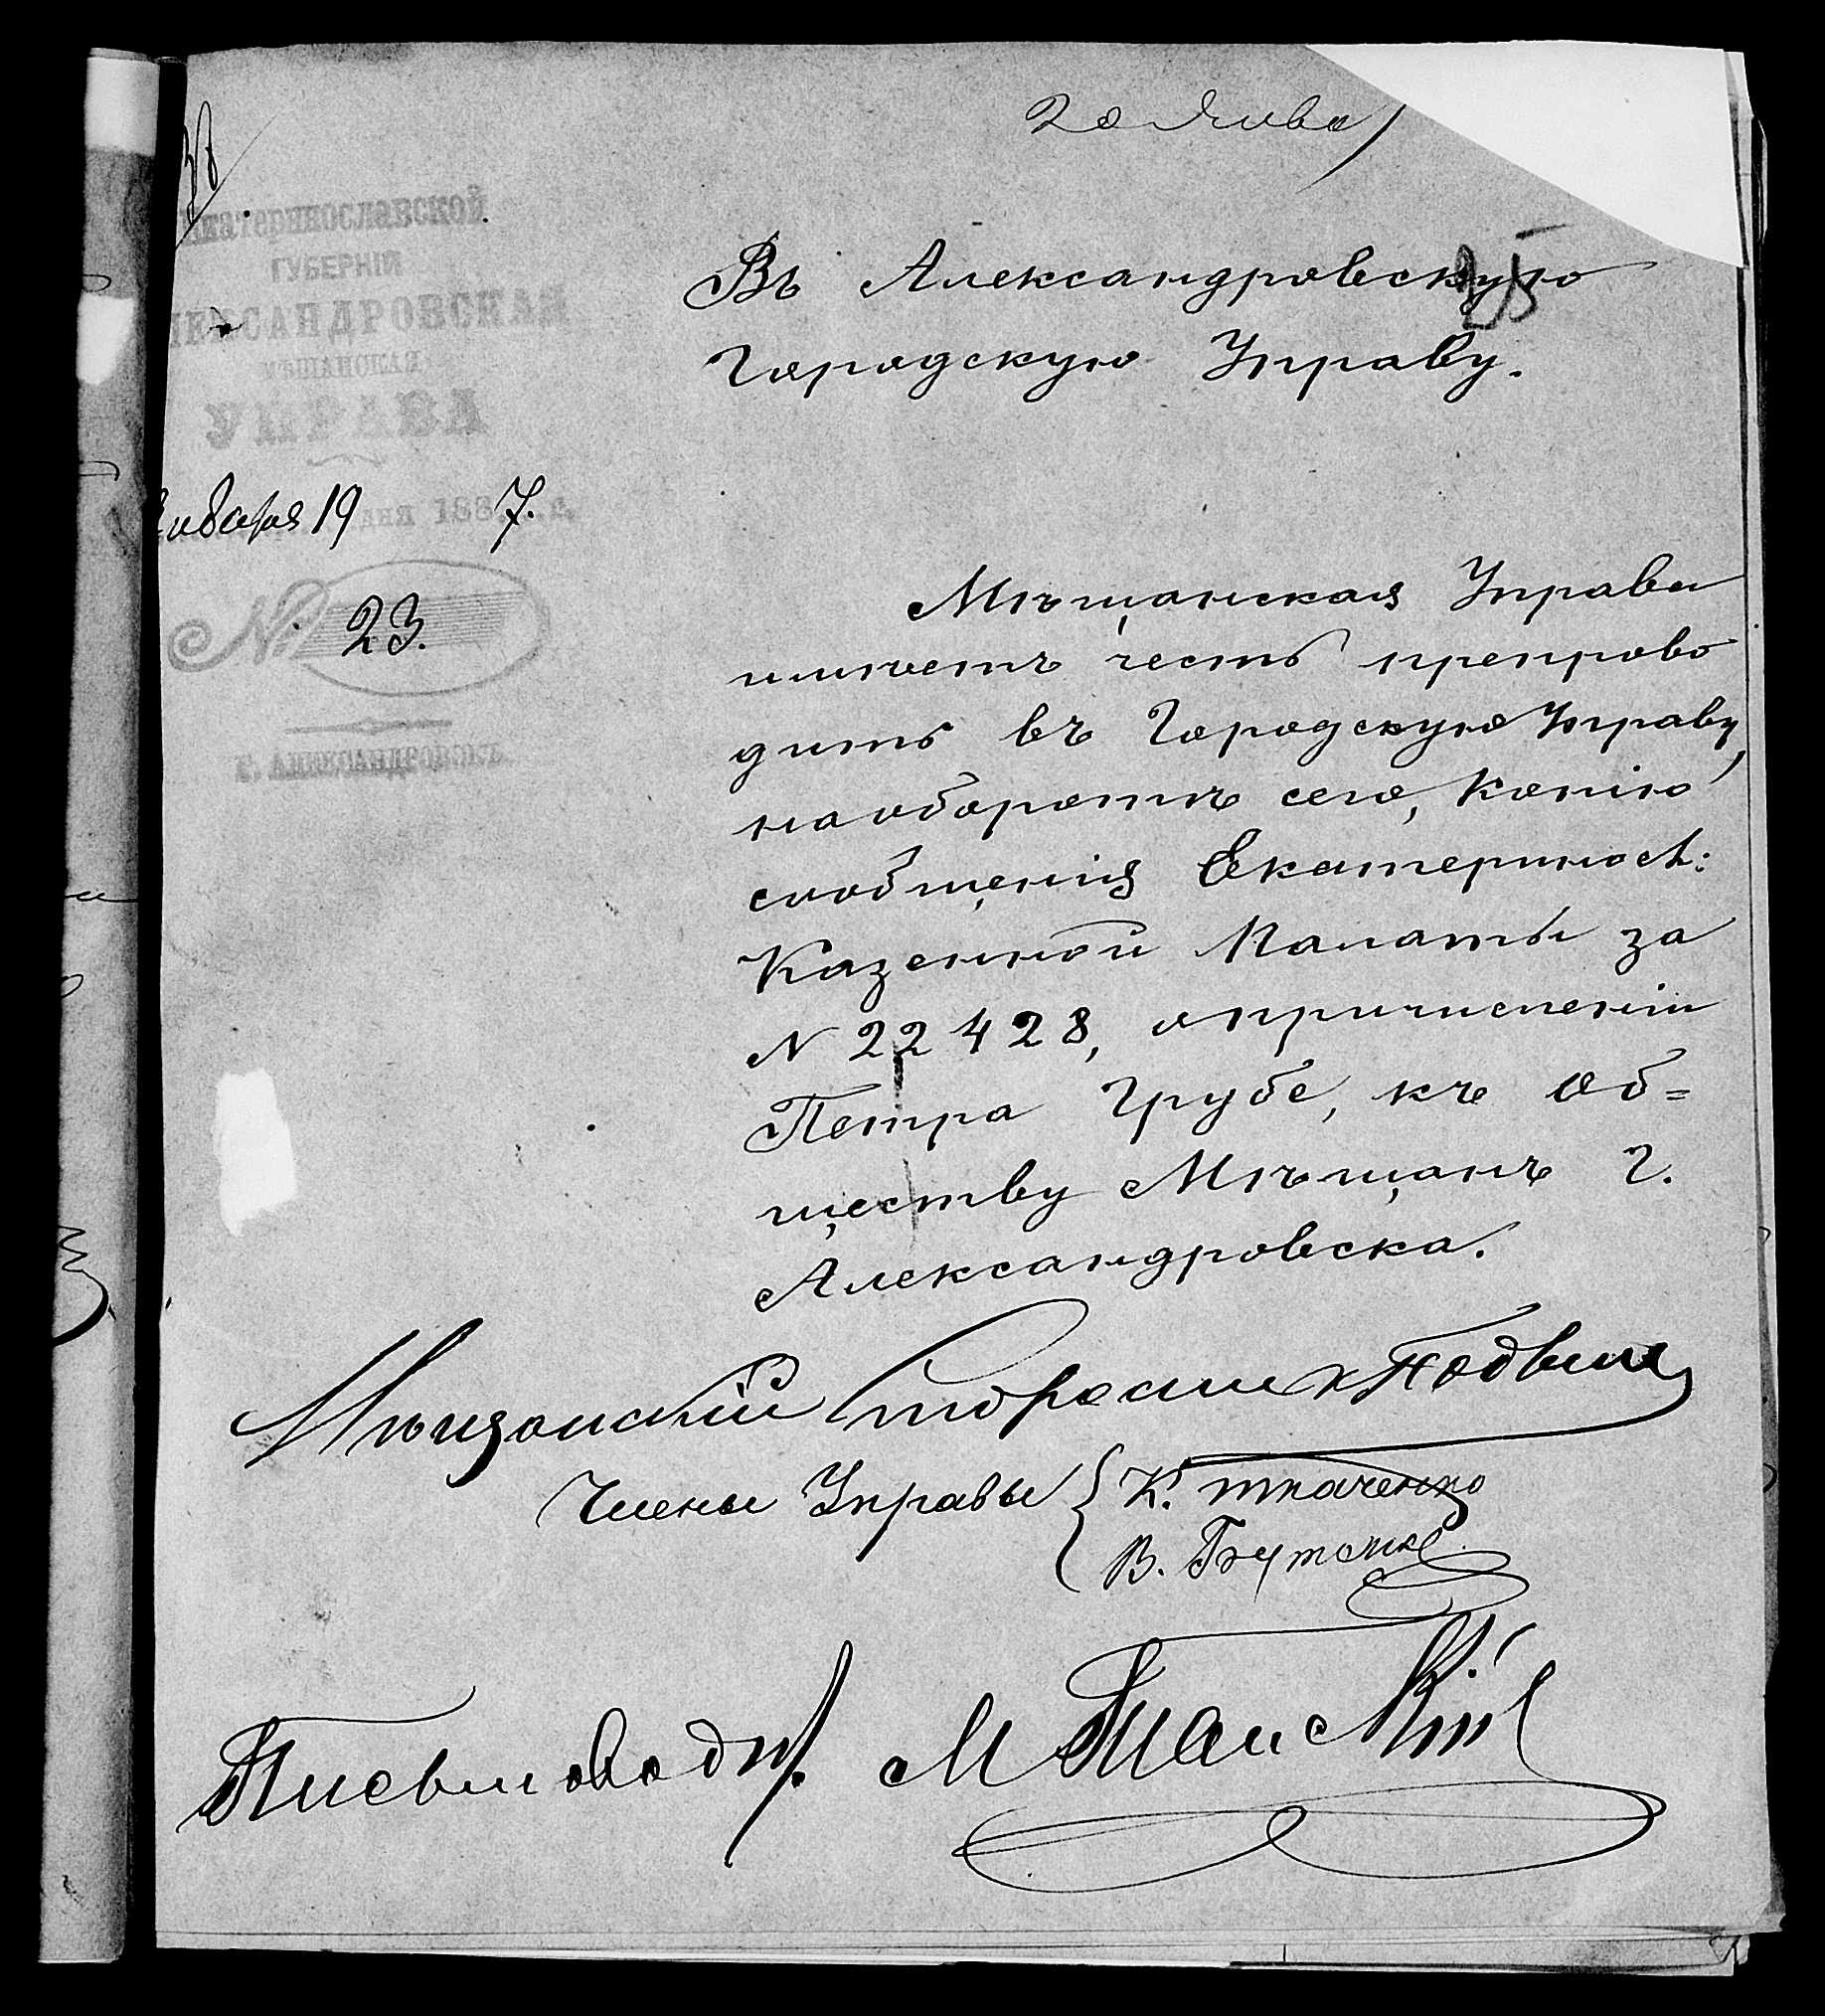 20 Янва
38
Екатеринославской
ГУБЕРНІЯ
АЛЕКСАНДРОВСКАЯ
МѢЩАНСКАЯ
УПРАВА
Января 19 дня 1887. г.
№ 23.
Г. АЛЕКСАНДРОВСКЪ
25
Въ Александровскую
Городскую Управу.
Мѣщанская Управа
имѣетъ честь препрово
дить въ Городскую Управу,
на оборотѣ сего, копію
сообщенія Екатериносл:
Казенной Палаты за
N 22428, о причисленіи
Петра Грубе, къ об=
ществу Мѣщанъ г.
Александровска.
Мѣщанскій Староста
Члены Управы К. Ткаченко
В. Бутенко
Письмоводит. М